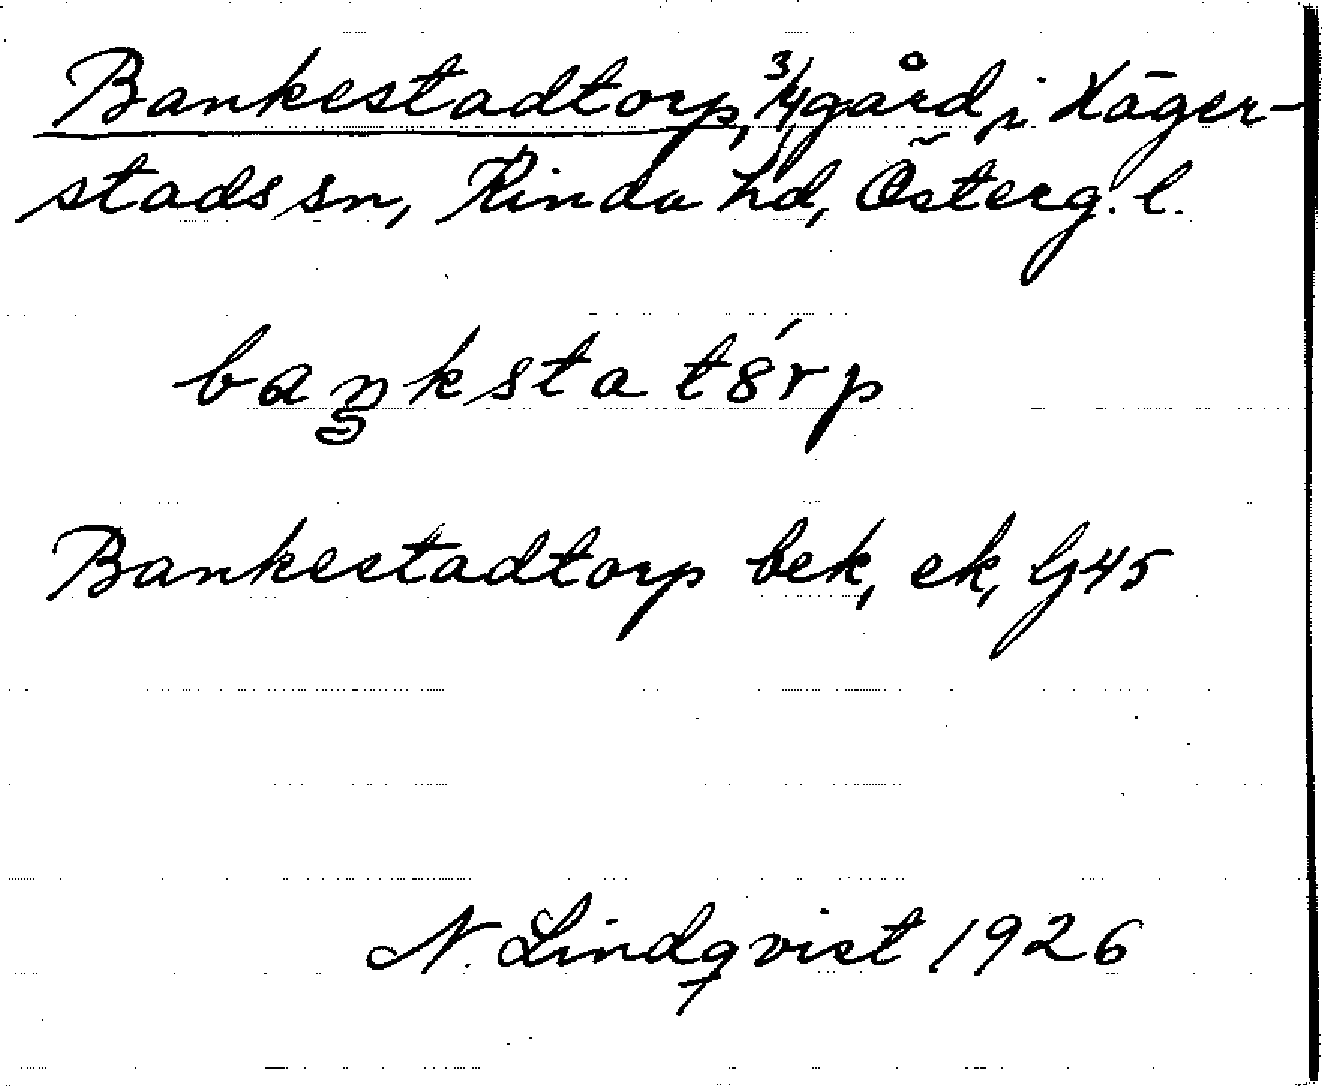 Bankestadtorp, 3/4 gård i Häger-
stads sn, Kinda hd, Österg. l.
baŋkstatórp
Bankestadtorp bek, ek, Gj 45
N. Lindqvist 1926